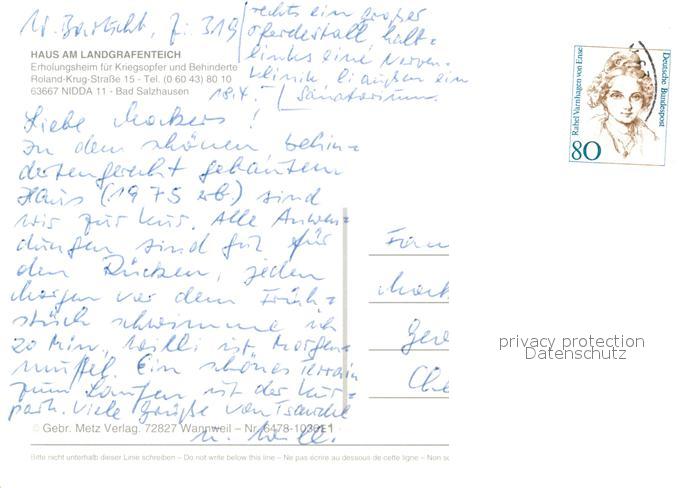 rechts ein großer
Pferdestall hält=
links eine Nerven=
klinik außen ein
Sanatorium.
Zi. 319
HAUS AM LANDGRAFENTEICH
Erholungsheim für Kriegsopfer und Behinderte
Roland-Krug-Straße 15 - Tel. (0 60 43) 80 10
63667 NIDDA 11 - Bad Salzhausen
18.4.
Liebe Mackers!
In dem schönen behin=
dertengerecht gebauten
Haus (1975 erb.) sind
wir zur Kur. Alle Anwen=
dungen sind gut für
den Rücken, jeden
Morgen vor dem Früh=
stück schwimme ich
20 Min, Willi ist Morgen=
muffel. Ein schönes Terrain
zum Laufen ist der Kur=
park. Viele Grüße von Traudel
u. Willi.
© Gebr. Metz Verlag. 72827 Wannweil – Nr. 6478-1036E1
Bitte nicht unterhalb dieser Linie schreiben – Do not write below this line – Ne pas écrire au dessous de cette ligne – Non sc
Rahel Varnhagen von Ense
Deutsche Bundespost
80
Fam
Mack
Che
privacy protection
Datenschutz